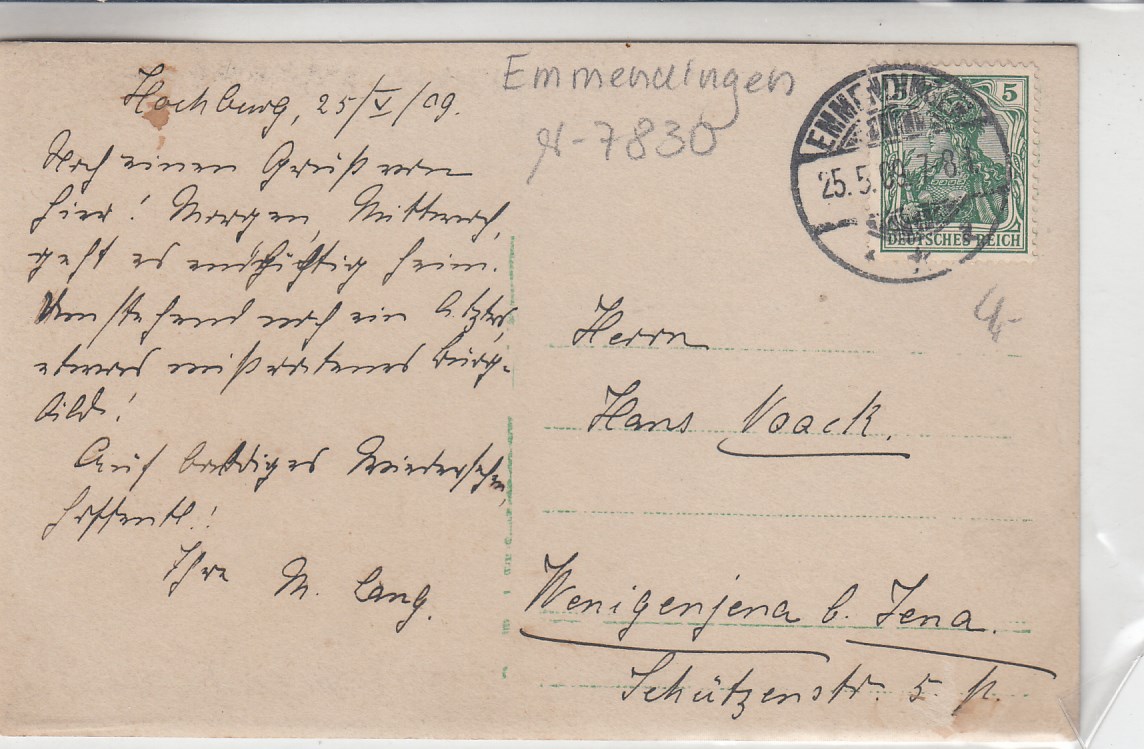 Hochburg, 25/V/09.
Noch einen Gruß von
hier! Morgen, Mittwoch,
geht es endgültig heim.
Umstehend noch ein letztes,
etwas mißratenes Burg-
bild!
Auf baldiges Wiedersehen,
hoffentl.!
Ihre M. Lang.
Emmendingen
N-7830
EMMENDINGEN
25.5.09.7-8
5
DEUTSCHES REICH
4,-
Herrn
Hans Noack.
Wenigenjena b. Jena.
Schützenstr. 5. p.